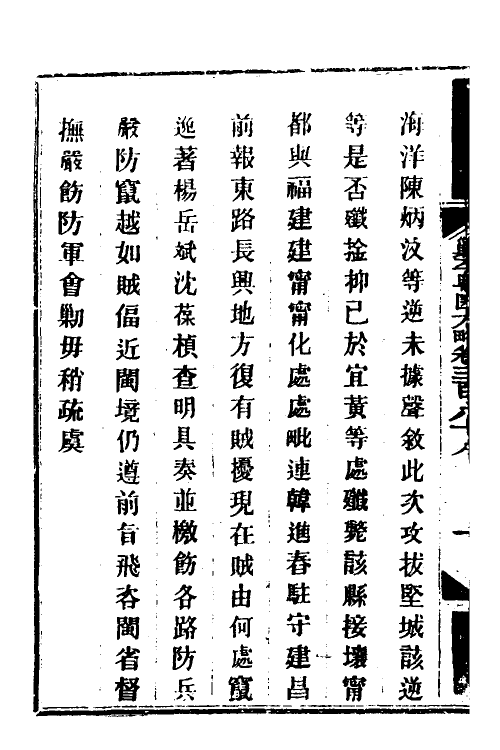 海洋陳炳汶等逆未據聲敘此次攻拔堅城該逆
等是否殲擒抑已於宜黃等處殲斃該縣接壤甯
都與福建建甯甯化處處毗連韓進春駐守建昌
前報東路長興地方復有賊擾現在賊由何處竄
逸著楊岳斌沈葆楨查明具奏並檄飭各路防兵
嚴防竄越如賊偪近閩境仍遵前旨飛咨閩省督
撫嚴飭防軍會勦毋稍疏虞